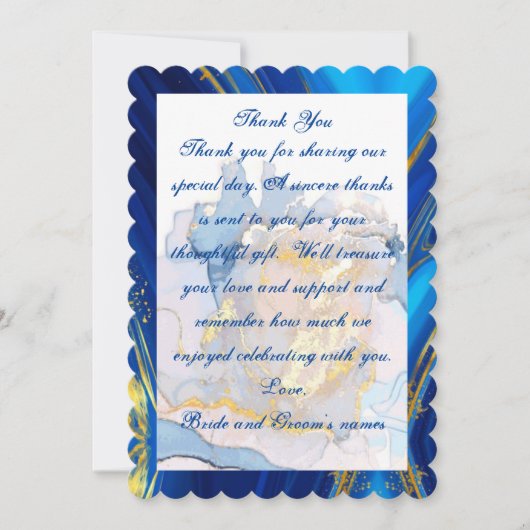 Thank You
Thank you for sharing our
special day. A sincere thanks
is sent to you for your
thoughtful gift. We'll treasure
your love and support and
remember how much we
enjoyed celebrating with you.
Love,
Bride and Groom's names